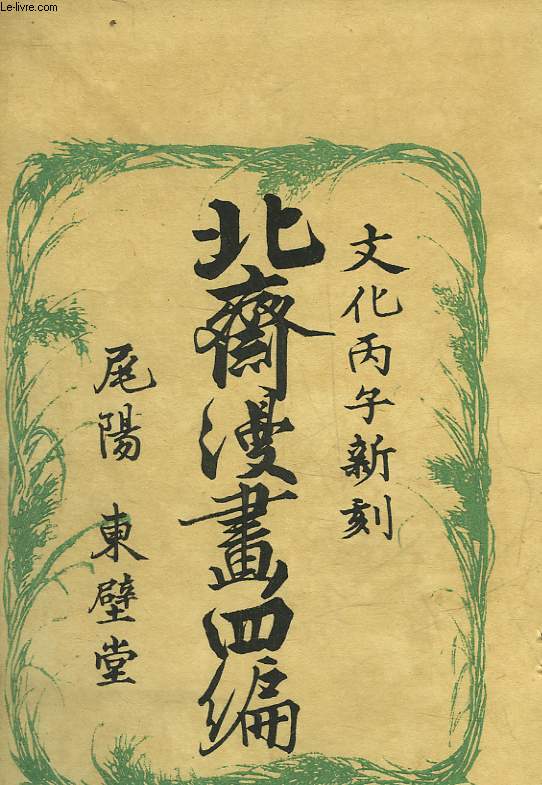 Le-livre.com
文化丙午新刻
北齋漫畫四編
尾陽 東壁堂